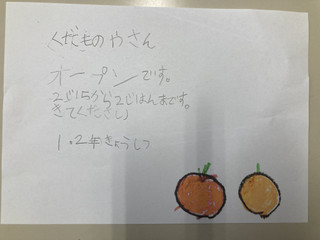 くだものやさん
オープンです。
2じ15から2じはんまです。
きてください
1.2年きょうしつ